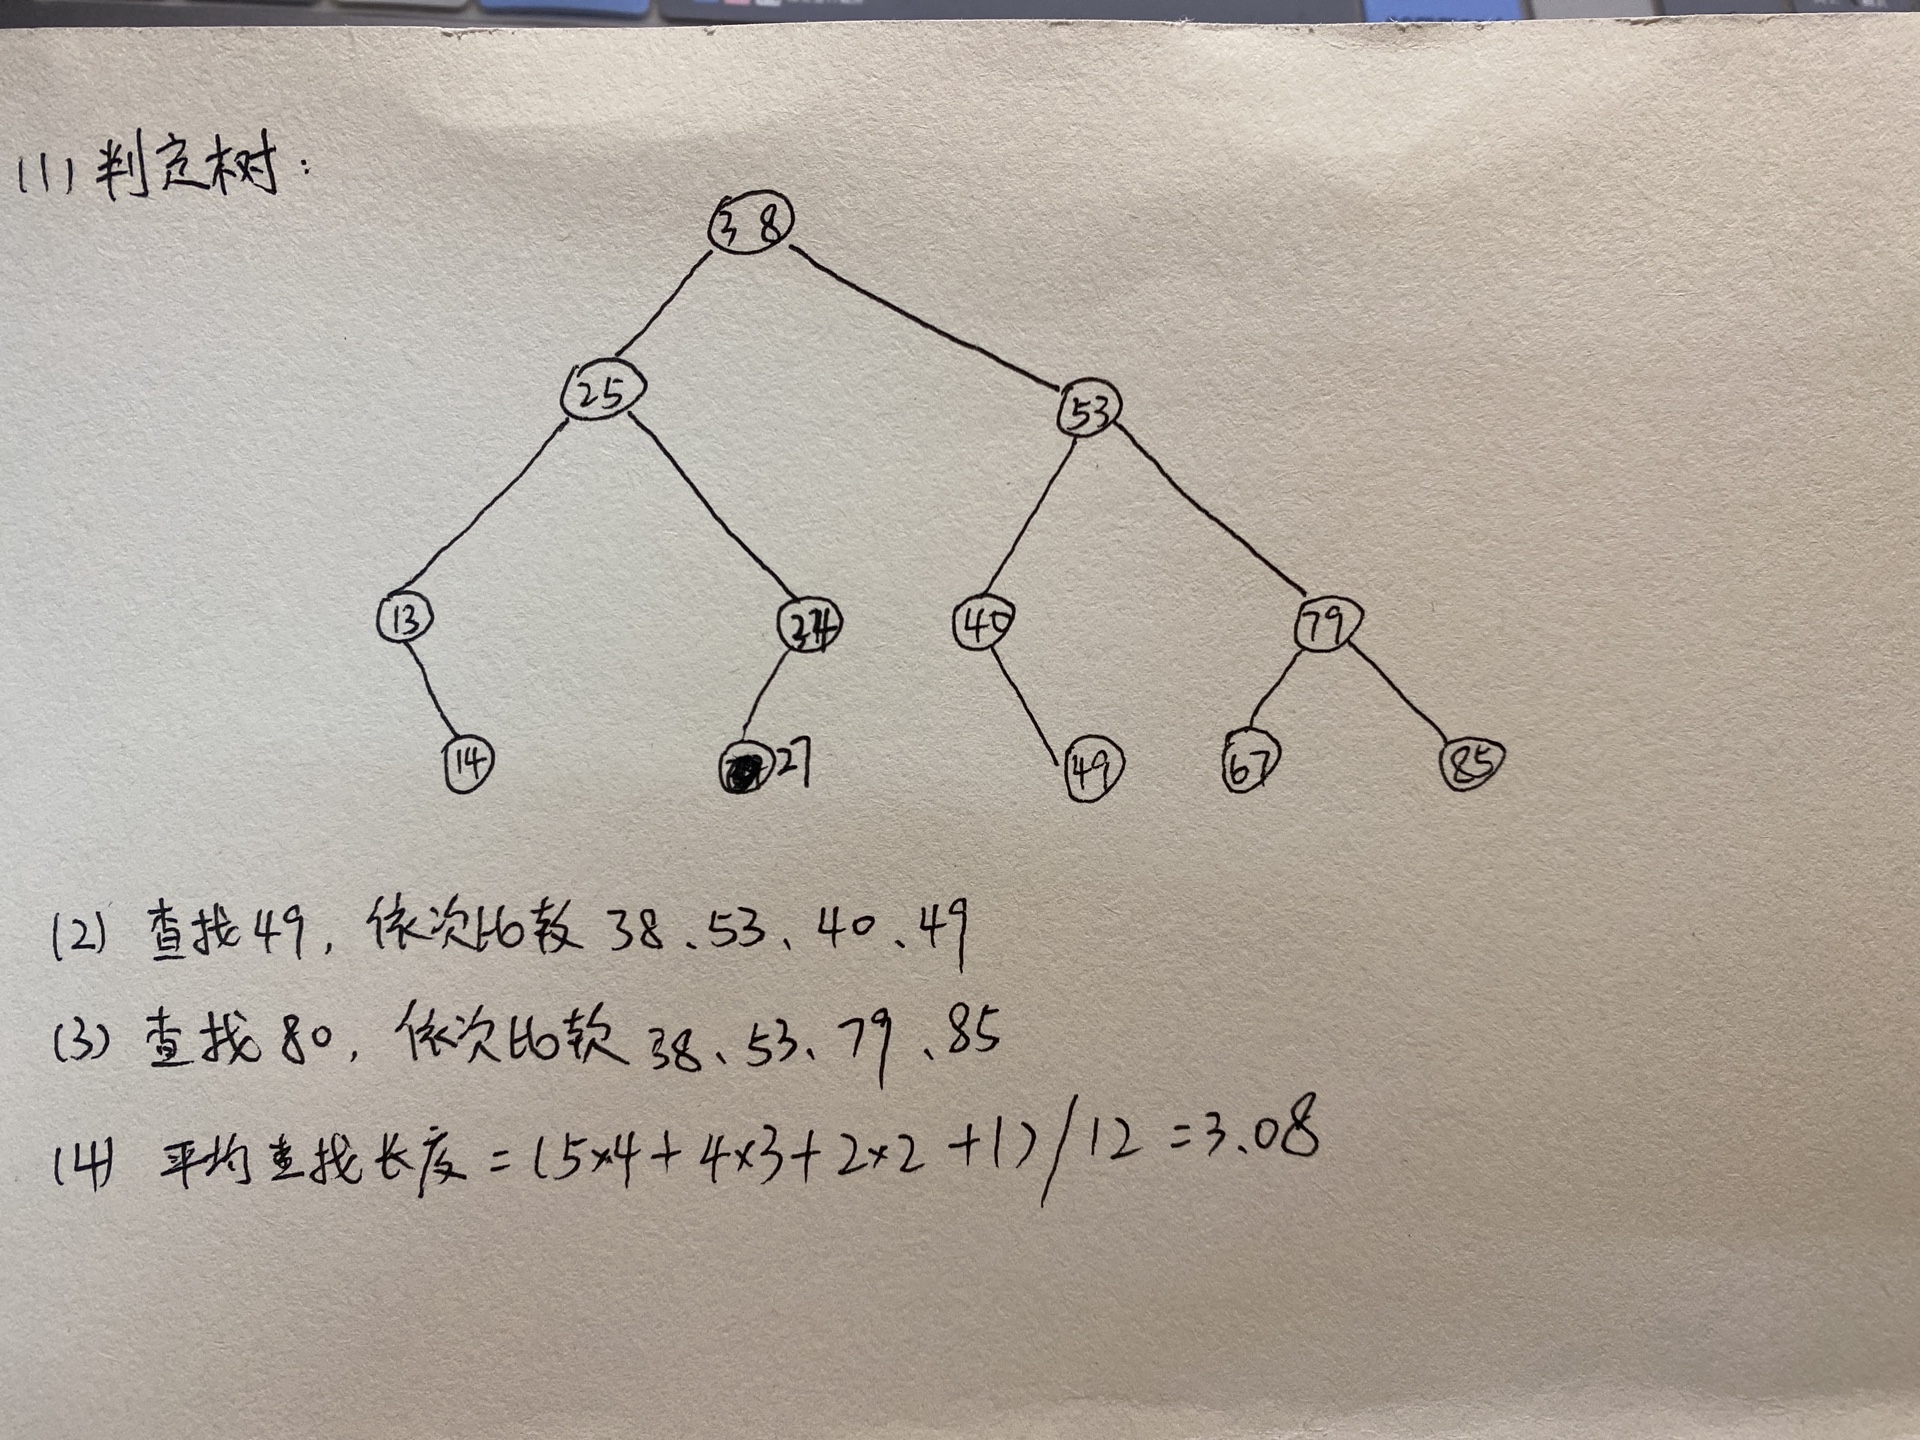 (1) 判定树:
38
25 53
13 34 40 79
14 27 49 67 85
(2) 查找49, 依次比较 38、53、40、49
(3) 查找 80, 依次比较 38、53、79、85
(4) 平均查找长度 = (5×4 + 4×3 + 2×2 + 1) / 12 = 3.08